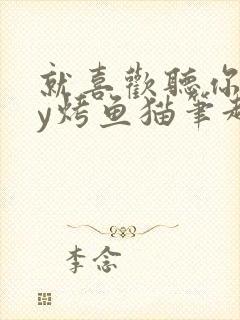 就喜歡聽你
y烤鱼猫筆趣
李念